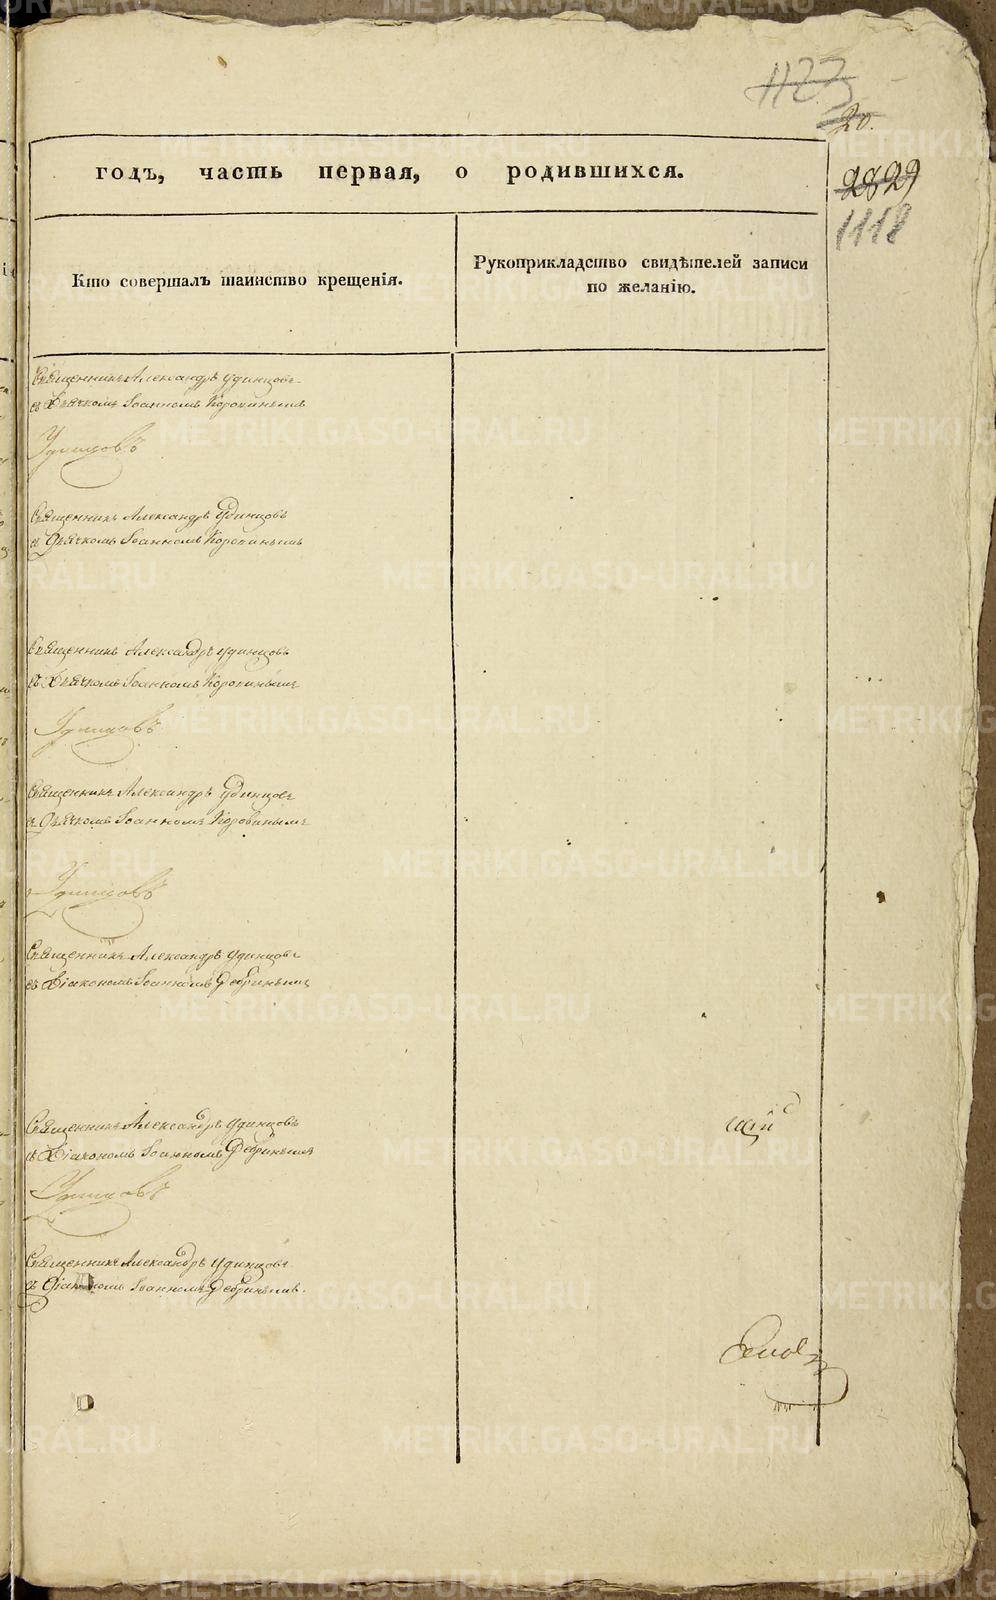 1123
20.
годъ, часть первая, о родившихся.
2829
1118
Кто совершалъ таинство крещенія.
Рукоприкладство свидѣтелей записи
по желанію.
Священникъ Александръ Удинцовъ
съ Дьячкомъ Іоанномъ Коровинымъ
Удинцовъ
Священникъ Александръ Удинцовъ
съ Дьячкомъ Іоанномъ Коровинымъ
Священникъ Александръ Удинцовъ
съ Дьячкомъ Іоанномъ Коровинымъ
Удинцовъ
Священникъ Александръ Удинцовъ
съ Дьячкомъ Іоанномъ Коровинымъ
Удинцовъ
Священникъ Александръ Удинцовъ
съ Діакономъ Іоанномъ Дебринымъ
Священникъ Александръ Удинцовъ
съ Діакономъ Іоанномъ Дебринымъ
Удинцовъ
Священникъ Александръ Удинцовъ
съ Діакономъ Іоанномъ Дебринымъ.
METRIKI.GASO-URAL.RU